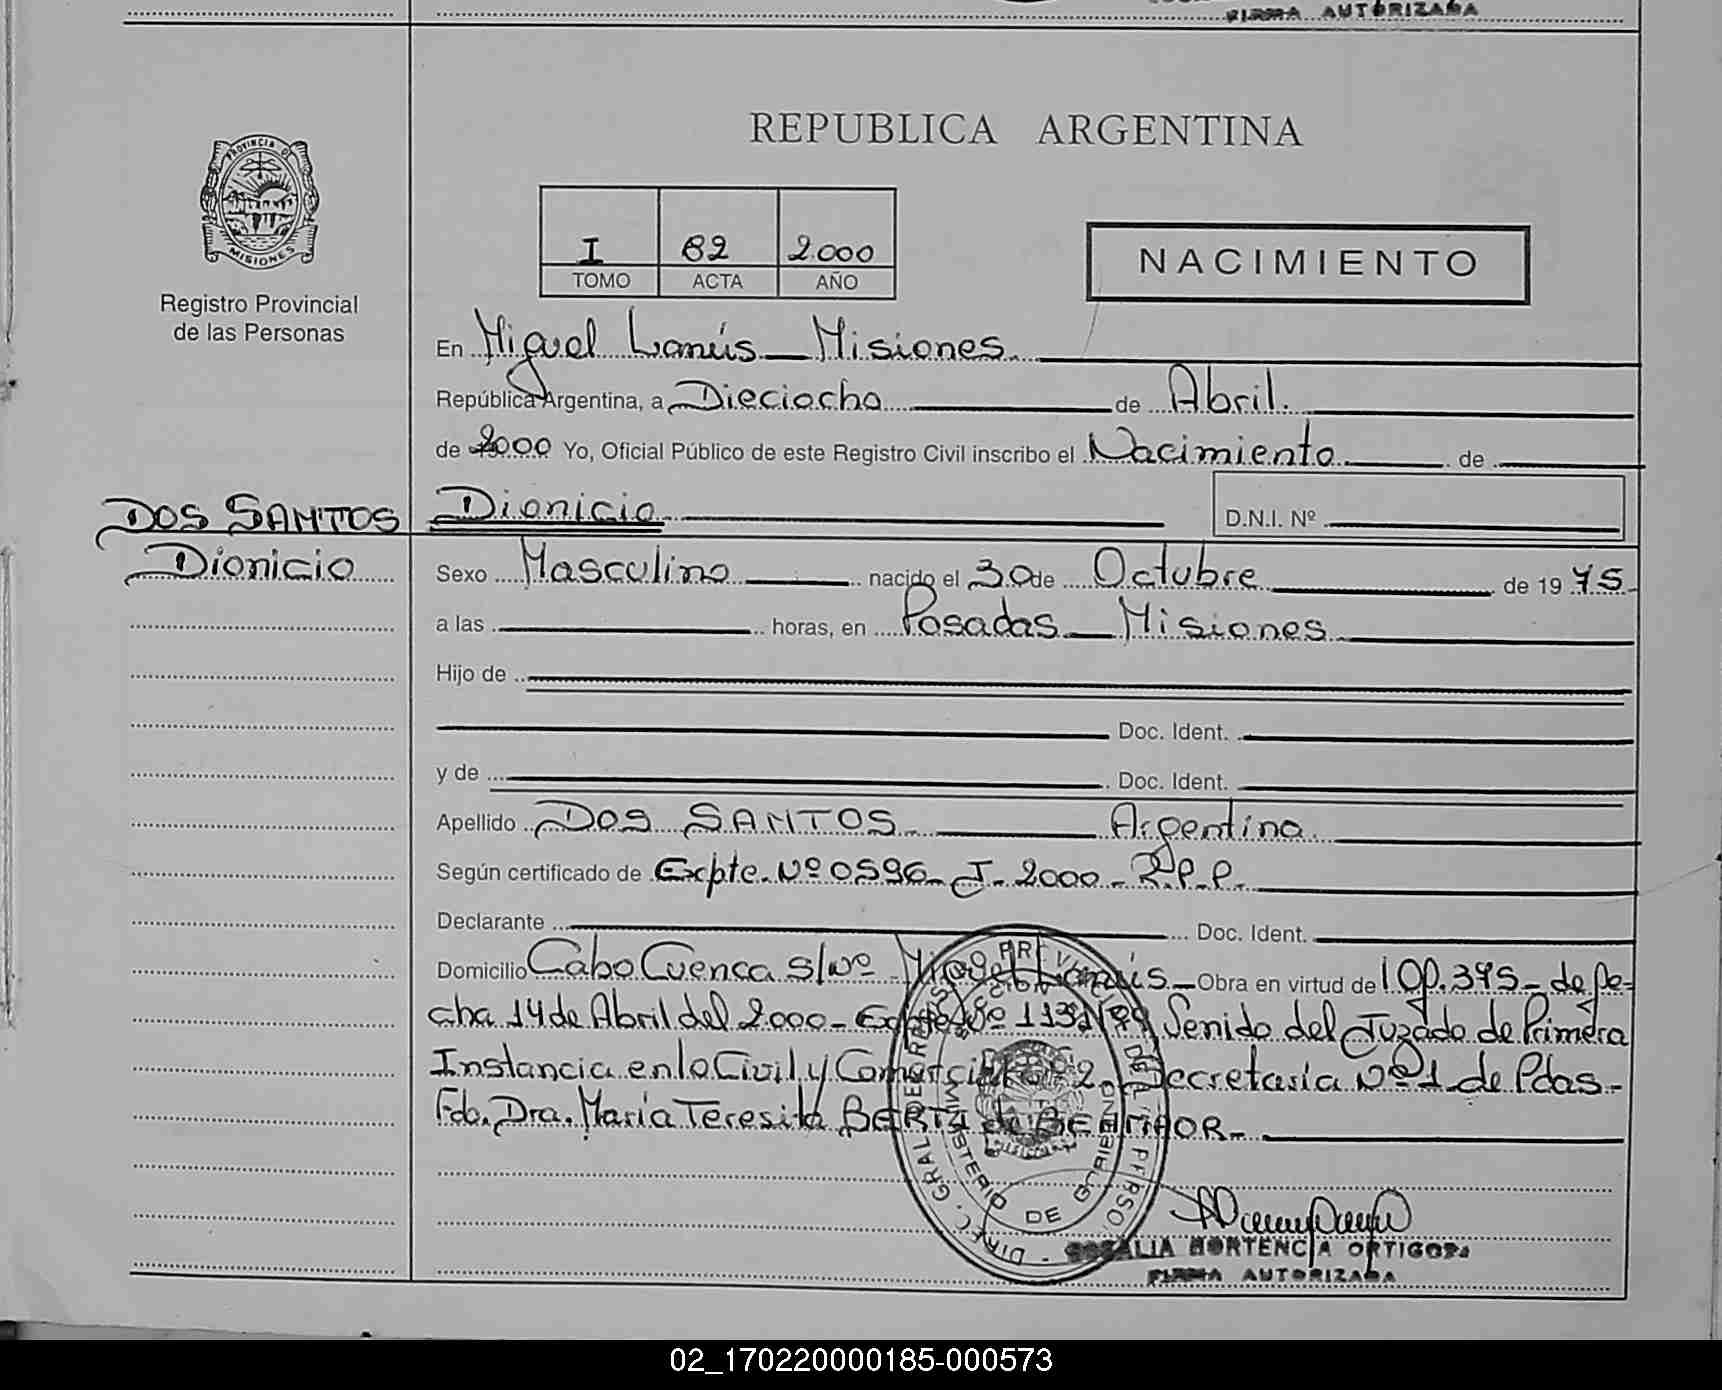 FIRMA AUTORIZADA
REPUBLICA ARGENTINA
PROVINCIA DE
MISIONES
Registro Provincial
de las Personas
I 62 2.000
TOMO ACTA AÑO
NACIMIENTO
En Miguel Lanús — Misiones
República Argentina, a Dieciocho de Abril.
de 2000 Yo, Oficial Público de este Registro Civil inscribo el Nacimiento de
DOS SANTOS
Dionicio
Dionicio
D.N.I. Nº
Sexo Masculino nacido el 30 de Octubre de 19 75
a las horas, en Posadas — Misiones
Hijo de
Doc. Ident.
y de Doc. Ident.
Apellido DOS SANTOS Argentina
Según certificado de Expte. Nº 0596 - J - 2000 - R.P.P.
Declarante Doc. Ident.
Domicilio Cabo Cuenca s/nº Miguel Lanús — Obra en virtud de Op. 375 - de fe-
cha 14 de Abril del 2.000 - Expte Nº Senido del Juzgado de Primera
Instancia en lo Civil y Comercial Nº 2, Secretaría Nº 1 de Pdas -
Fdo. Dra. María Teresita de
DIREC. GRAL
MINISTERIO DE GOBIERNO
ROSALIA HORTENCIA ORTIGOZA
FIRMA AUTORIZADA
02_170220000185-000573